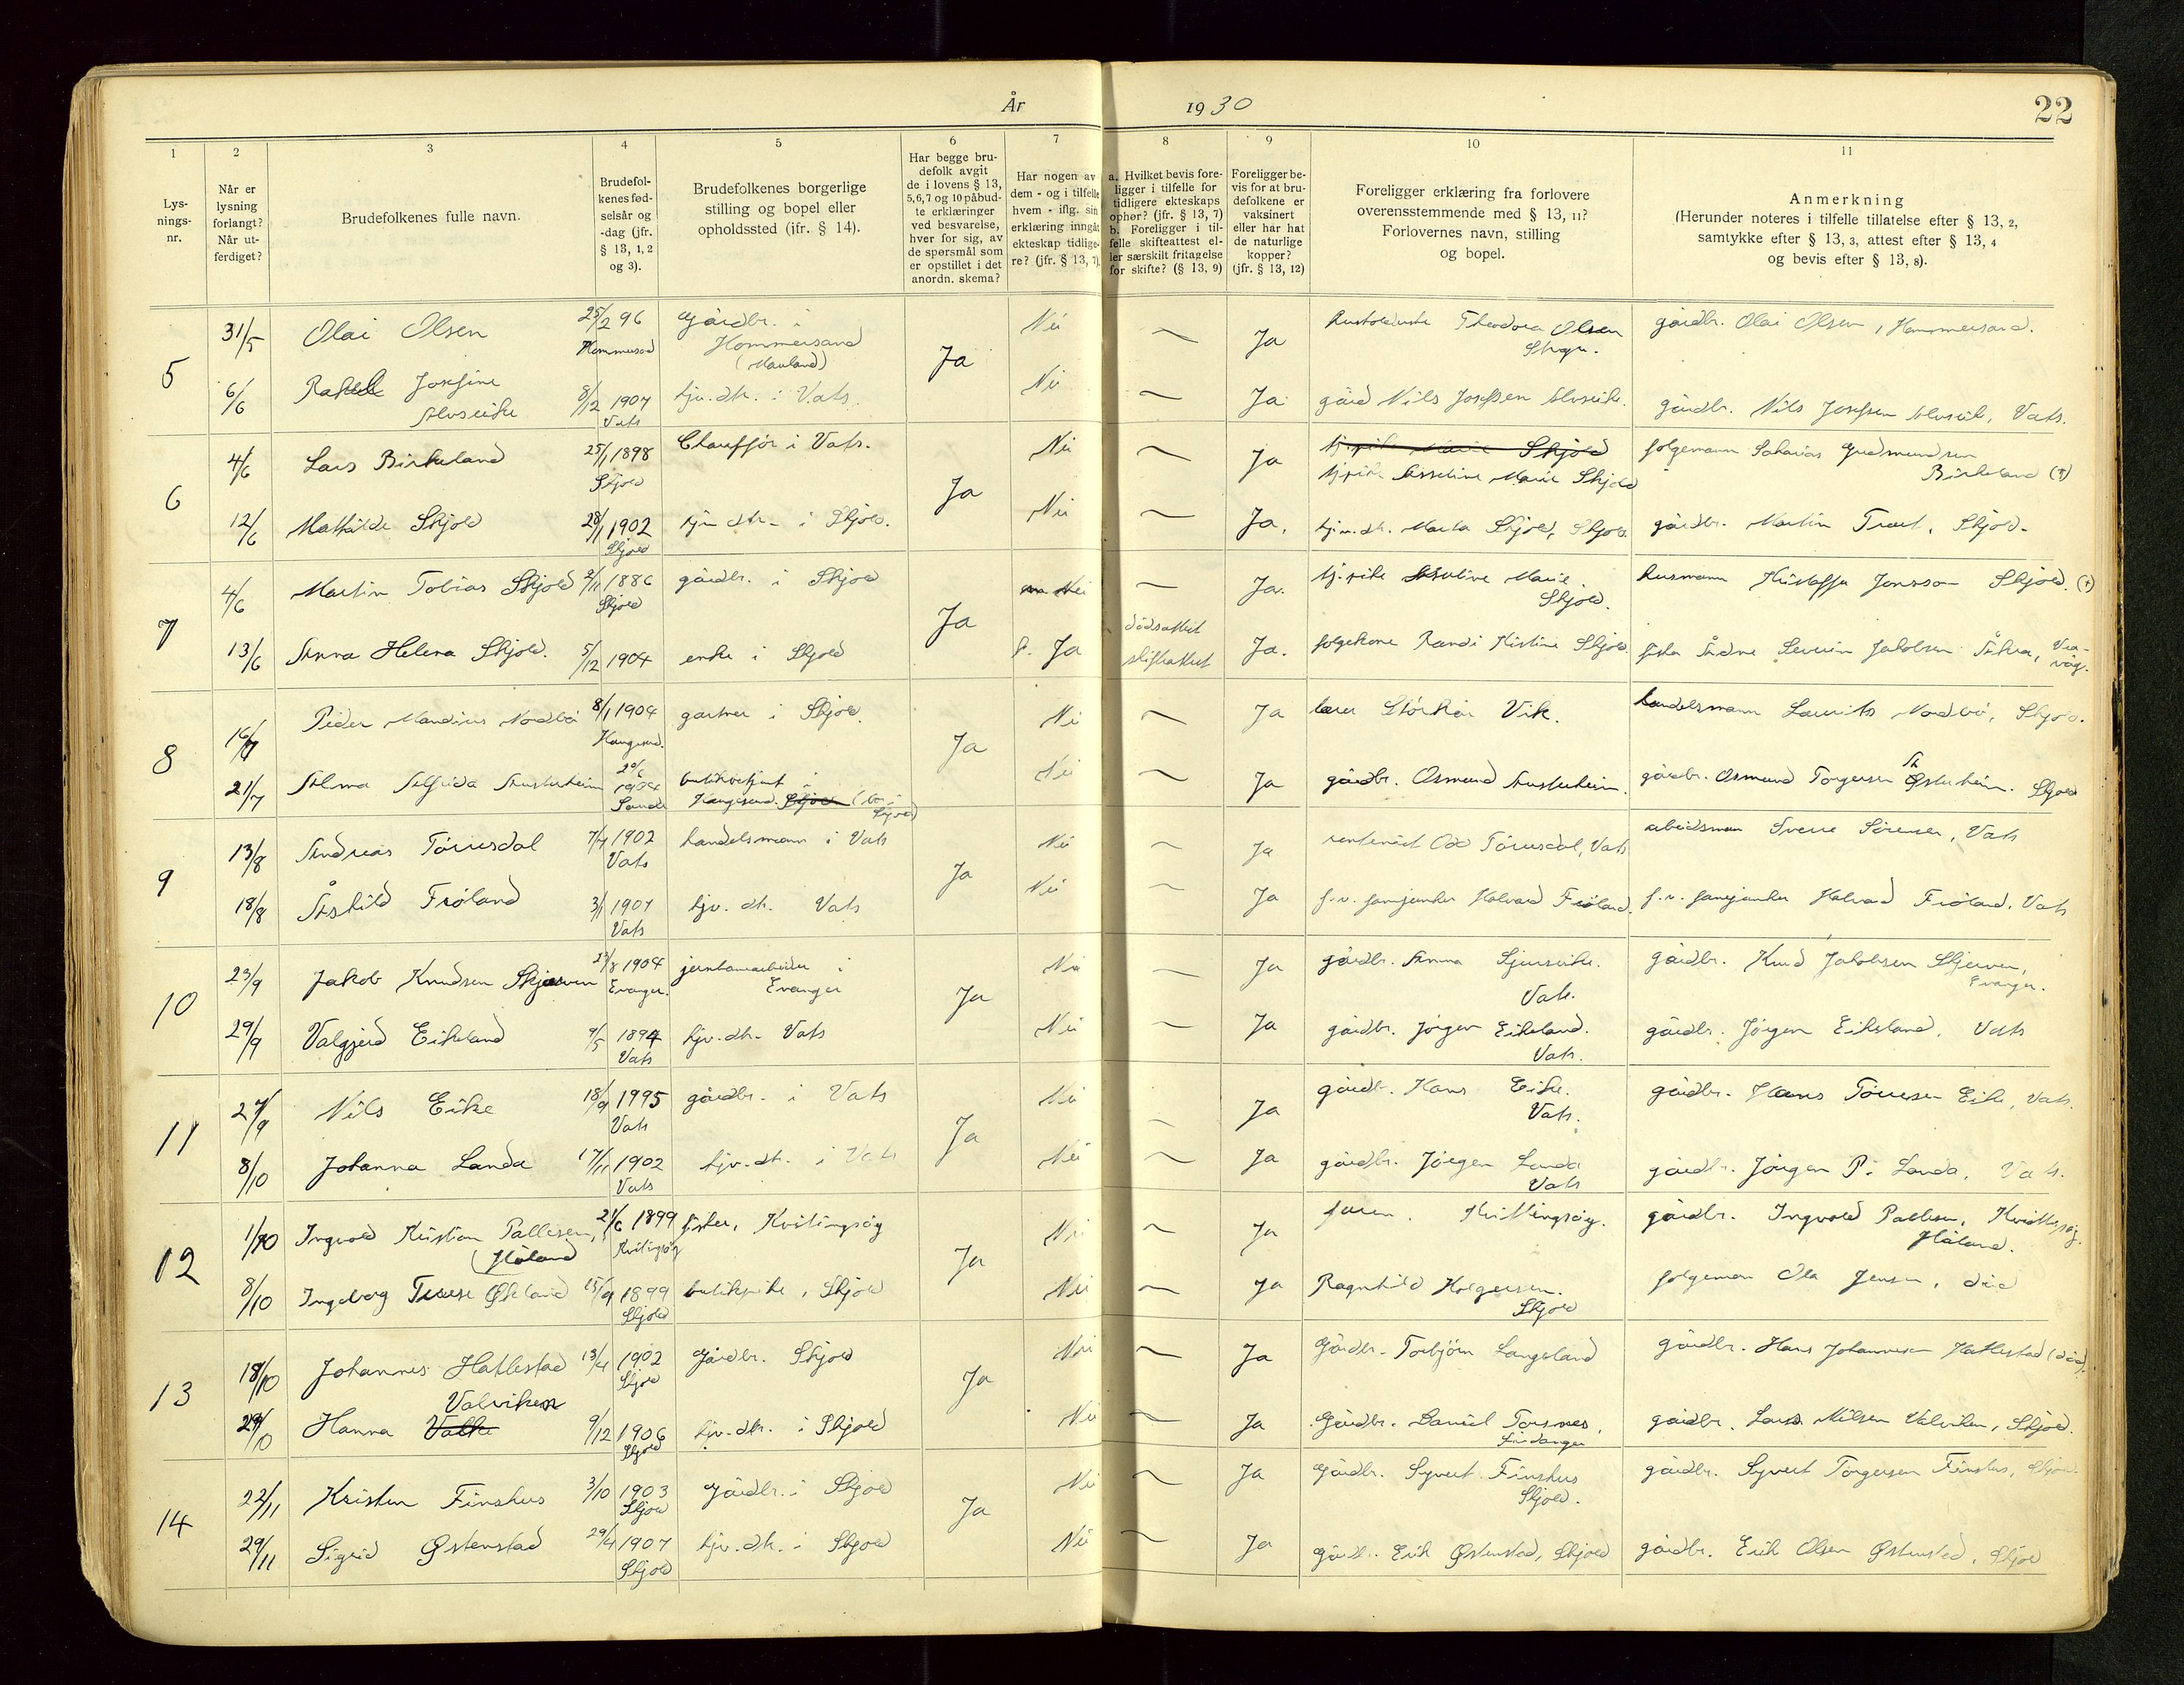 År 1930
22
1 2 3 4 5 6 7 8 9 10 11
Lys-
nings-
nr.
Når er
lysning
forlangt?
Når ut-
ferdiget?
Brudefolkenes fulle navn.
Brudefol-
kenes fød-
selsår og
-dag (jfr.
§ 13, 1, 2
og 3).
Brudefolkenes borgerlige
stilling og bopel eller
opholdssted (jfr. § 14).
Har begge bru-
defolk avgit
de i lovens § 13,
5,6,7 og 10 påbud-
te erklæringer
ved besvarelse,
hver for sig, av
de spørsmål som
er opstillet i det
anordn. skema?
Har nogen av
dem - og i tilfelle
hvem - iflg. sin
erklæring inngåt
ekteskap tidlige-
re? (jfr. § 13, 7).
a. Hvilket bevis fore-
ligger i tilfelle for
tidligere ekteskaps
ophør? (jfr. § 13, 7)
b. Foreligger i til-
felle skifteattest el-
ler særskilt fritagelse
for skifte? (§ 13, 9)
Foreligger be-
vis for at bru-
defolkene er
vaksinert
eller har hat
de naturlige
kopper?
(jfr. § 13, 12)
Foreligger erklæring fra forlovere
overensstemmende med § 13, 11?
Forlovernes navn, stilling
og bopel.
Anmerkning
(Herunder noteres i tilfelle tillatelse efter § 13, 2,
samtykke efter § 13, 3, attest efter § 13, 4
og bevis efter § 13, 8).
5
31/5 Olai Olsen 25/2 96 gårdbr. i Nei Ja Theodora Olsen gårdbr. Olai Olsen, Hommersand.
Hommersand
(Mauland) Ja
6/6 Rakel Josefine 8/12 1907 tjv. dtr. i Vats. Nei Ja gård Nils Josefsen gårdbr. Nils Josefsen Vats.
Vats
6
4/6 Lars Birkeland 25/1 1898 Chauffør i Vats. Nei Ja Skjold folgemann Sakarias Gudmundsen
Skjold Ja Marie Skjold Birkeland (†)
12/6 Mathilde Skjold 28/1 1902 tjv. dtr. i Skjold. Nei Ja. Marta Skjold, Skjold. gårdbr. Martin Skjold.
Skjold
7
4/6 Martin Tobias Skjold 2/11 1886 gårdbr. i Skjold Nei Ja. tj. pike Marie husmann Jonsson Skjold. (†)
Skjold Ja Skjold.
13/6 Anna Helena Skjold. 5/12 1904 enke i Skjold b. Ja dödsattest Ja. folgekone Randi Kistine Skjold. Severin Jakobsen Åkra, Vea-
skifteattest våg.
8
16/7 Peder Mandius Nordbø 8/1 1904 gartner i Skjold. Nei Ja lærer Vik. handelsmann Laurits Nordbø, Skjold.
Haugesund. Ja
21/7 Alma Alfrida Austerheim 1904 butikbetjent i Nei Ja gårdbr. Osmund Austerheim. gårdbr. Osmund Torgersen Østerheim. Skjold
Sande Haugesund. Skjold (bor i
Skjold)
9
13/8 Andreas Tørresdal 7/4 1902 handelsmann i Vats Nei Ja Tørresdal, Vats arbeidsmann Sverre Sørensen, Vats
Vats Ja
18/8 Åshild Frøland 3/1 1907 tjv. dtr. Vats Nei Ja f.v. fanejunker Halvard Frøland. f.v. fanejunker Halvard Frøland, Vats
Vats
10
23/9 Jakob Knudsen Skjerven 23/8 1904 jernbanearbeider i Nei Ja gårdbr. Anna gårdbr. Knud Jakobsen Skjerven,
Evanger. Evanger Ja Vats. Evanger.
29/9 Valgjerd Eikeland 9/5 1894 tjv. dtr. Vats Nei Ja gårdbr. Jörgen Eikeland. gårdbr. Jörgen Eikeland, Vats
Vats Vats.
11
27/9 Nils Eike 18/9 1995 gårdbr. i Vats Nei Ja gårdb. Hans Eike. gårdbr. Hans Tørresen Eike, Vats.
Vats Ja Vats.
8/10 Johanna Landa 17/11 1902 tjv. dtr. i Vats Nei Ja gårdbr. Jörgen Landa gårdbr. Jörgen P. Landa, Vats.
Vats Vats
12
1/10 Ingvald Kristian Pallesen, 21/6 1899 fisker, Kvitingsøy Nei Ja Kvittingsøy. gårdbr. Ingvald Pallesen, Kvittingsøy.
(Håland Kvitingsøy Ja Håland.
8/10 Ingeborg Øteland 15/9 1899 butikpike, Skjold Nei Ja Ragnhild Holgersen. folgeman Ola Jensen, død
Skjold Skjold
13
18/10 Johannes Hatlestad 13/4 1902 gårdbr. Skjold Nei Ja Gårdbr. Torbjörn Langeland gårdbr. Hans Johannesen Hatlestad (død).
Valviken Skjold Ja
29/10 Hanna 9/12 1906 tjv. dtr. i Skjold Nei Ja Gårdbr. Daniel Torsnes, gårdbr. Lars Nilsen Valviken, Skjold.
Skjold
14
22/11 Kristen Finshus 3/10 1903 gårdbr. i Skjold Nei Ja Gårdbr. Syvert Finshus gårdbr. Syvert Torgersen Finshus, Skjold.
Skjold Ja Skjold.
29/11 Sigrid Østenstad 29/4 1907 tjv. dtr. i Skjold Nei Ja gårdbr. Erik Østenstad, Skjold gårdbr. Erik Olsen Østenstad, Skjold
Skjold